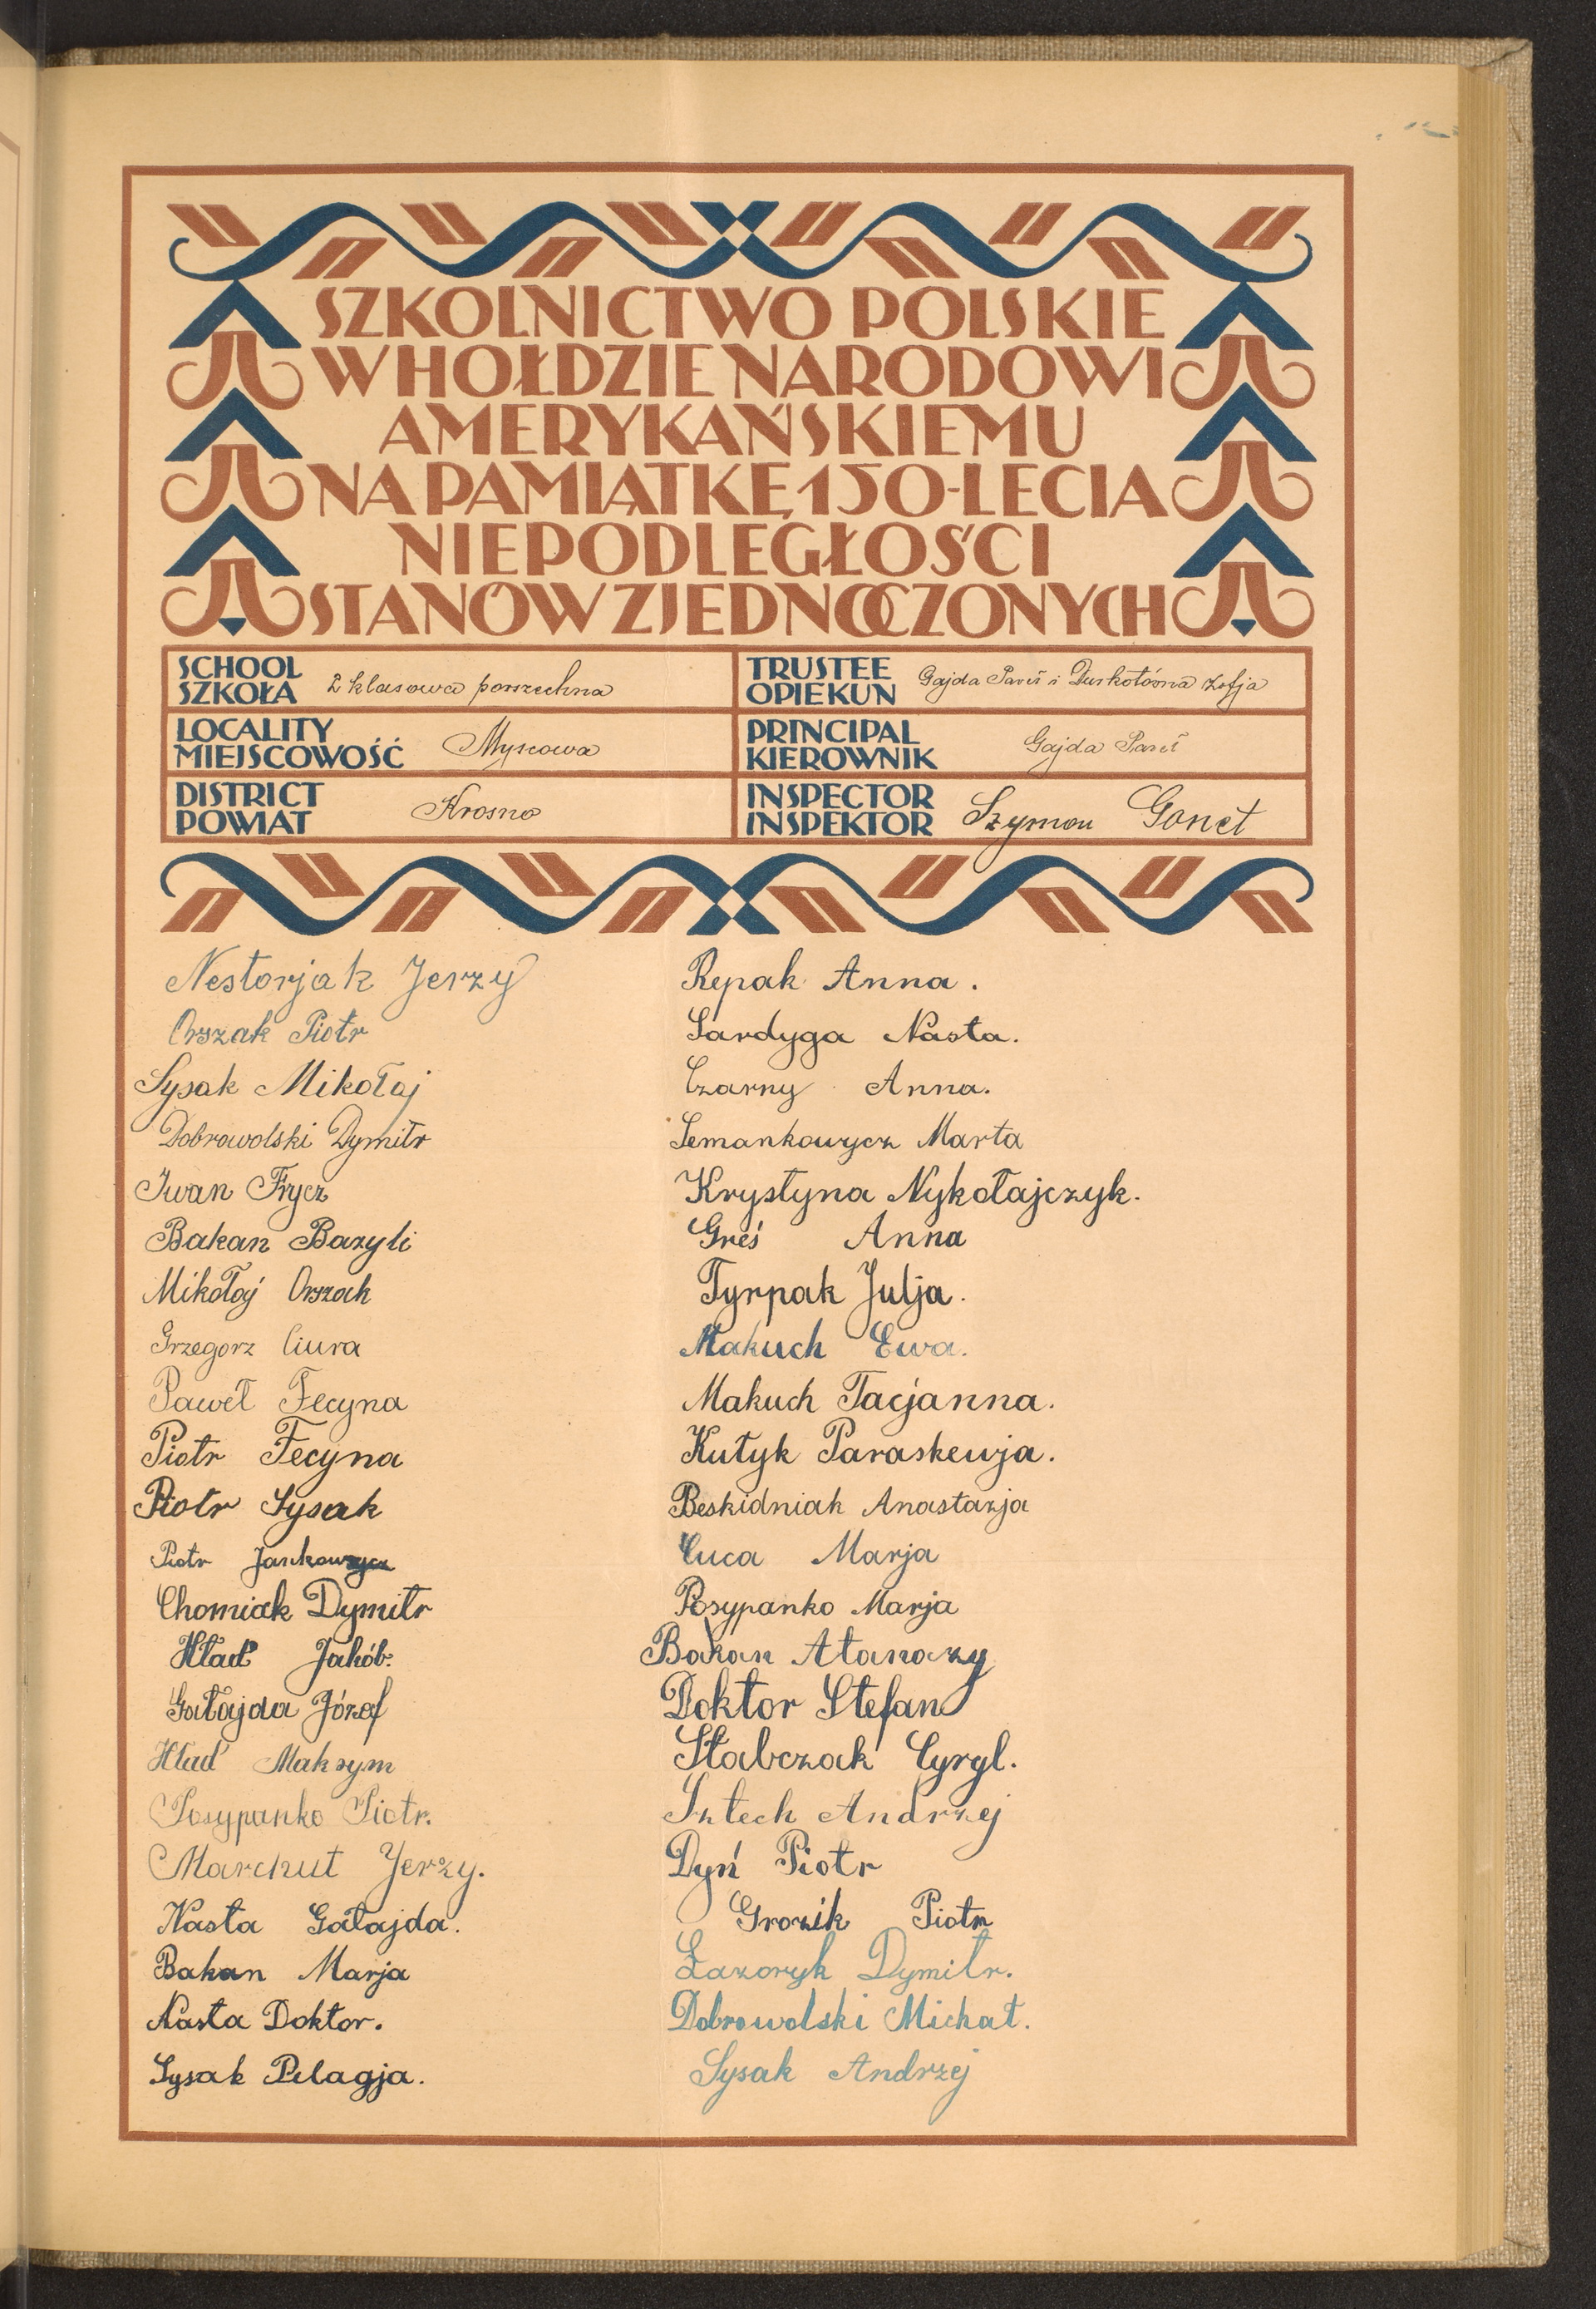 SZKOLNICTWO POLSKIE
W HOŁDZIE NARODOWI
AMERYKAŃSKIEMU
NA PAMIĄTKĘ 150-LECIA
NIEPODLEGŁOŚCI
STANÓW ZJEDNOCZONYCH
SCHOOL
SZKOŁA 2 klasowa powszechna
TRUSTEE
OPIEKUN Gajda Paweł i Zofja
LOCALITY
MIEJSCOWOŚĆ Myscowa
PRINCIPAL
KIEROWNIK Gajda Paweł
DISTRICT
POWIAT Krosno
INSPECTOR
INSPEKTOR Szymon Gonet
Nestorjak Jerzy
Orszak Piotr
Sysak Mikołaj
Dobrowolski Dymitr
Iwan Frycz
Bakan Bazyli
Mikołaj Orszak
Grzegorz Ciura
Paweł Fecyna
Piotr Fecyna
Piotr Sysak
Piotr Jankowycz
Chomiak Dymitr
Hład Jakób.
Gałajda Józef
Hład Maksym
Posypanko Piotr.
Marchut Jerzy.
Nasta Gałajda.
Bakan Marja
Nasta Doktor.
Sysak Pelagja.
Repak Anna.
Sardyga Nasta.
Czarny Anna.
Semankowycz Marta
Krystyna Nykołajczyk.
Greś Anna
Tyrpak Julja.
Makuch Ewa.
Makuch Tacjanna.
Kutyk Paraskewja.
Beskidniak Anastazja
Cuca Marja
Posypanko Marja
Bakan Atanazy
Doktor Stefan
Słabczak Cyryl.
Sztech Andrzej
Dyń Piotr
Grozik Piotr
Łazoryk Dymitr.
Dobrowolski Michał.
Sysak Andrzej